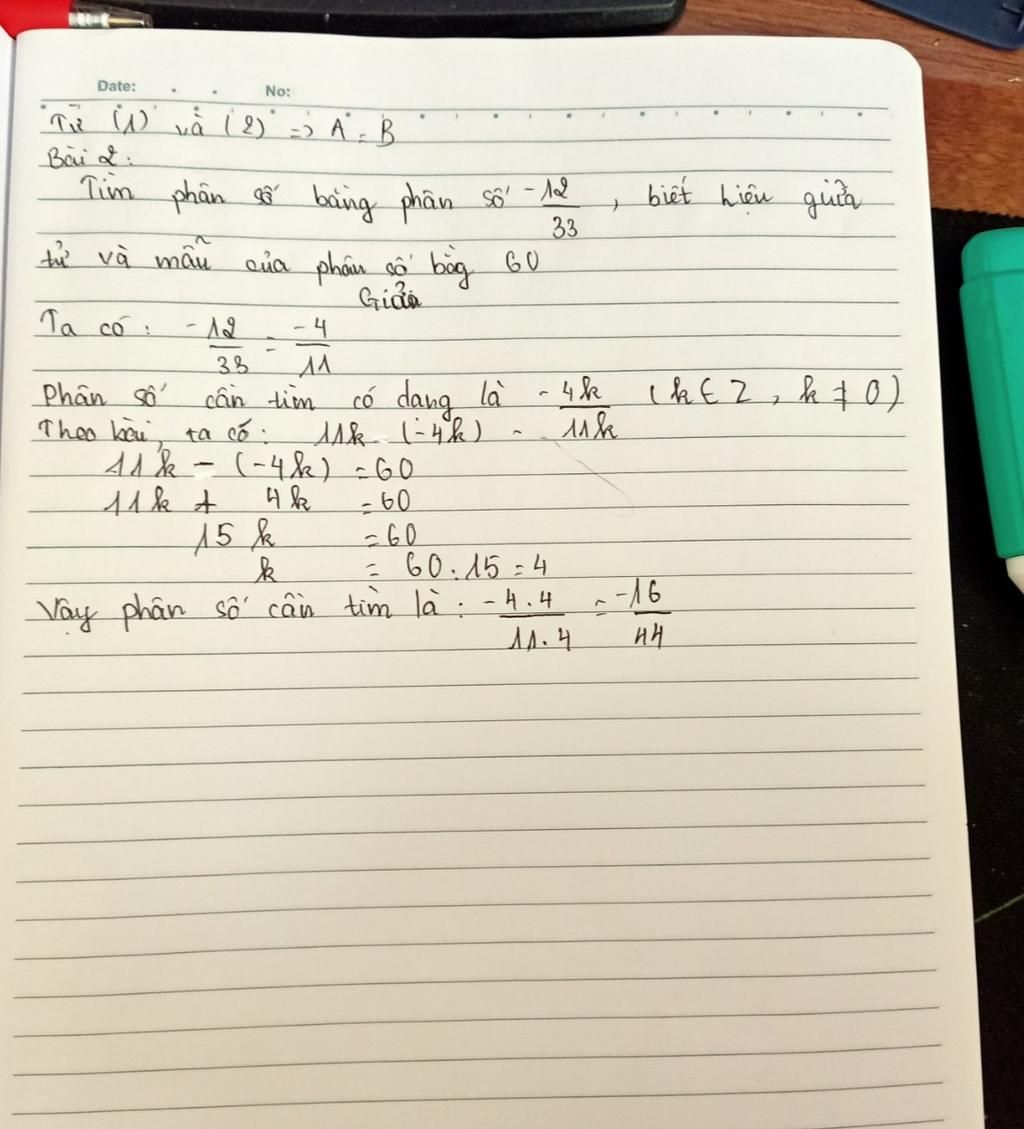 Date: No:
Từ (1) và (2) => A = B
Bài 2:
Tìm phân số bằng phân số -12/33, biết hiệu giữa
tử và mẫu của phân số bằg 60
Giải
Ta có: -12/33 = -4/11
Phân số cần tìm có dạng là -4k/11k (k ∈ Z, k ≠ 0)
Theo bài, ta có: 11k - (-4k)
11k - (-4k) = 60
11k + 4k = 60
15 k = 60
k = 60:15 = 4
Vậy phân số cần tìm là: -4.4/11.4 = -16/44